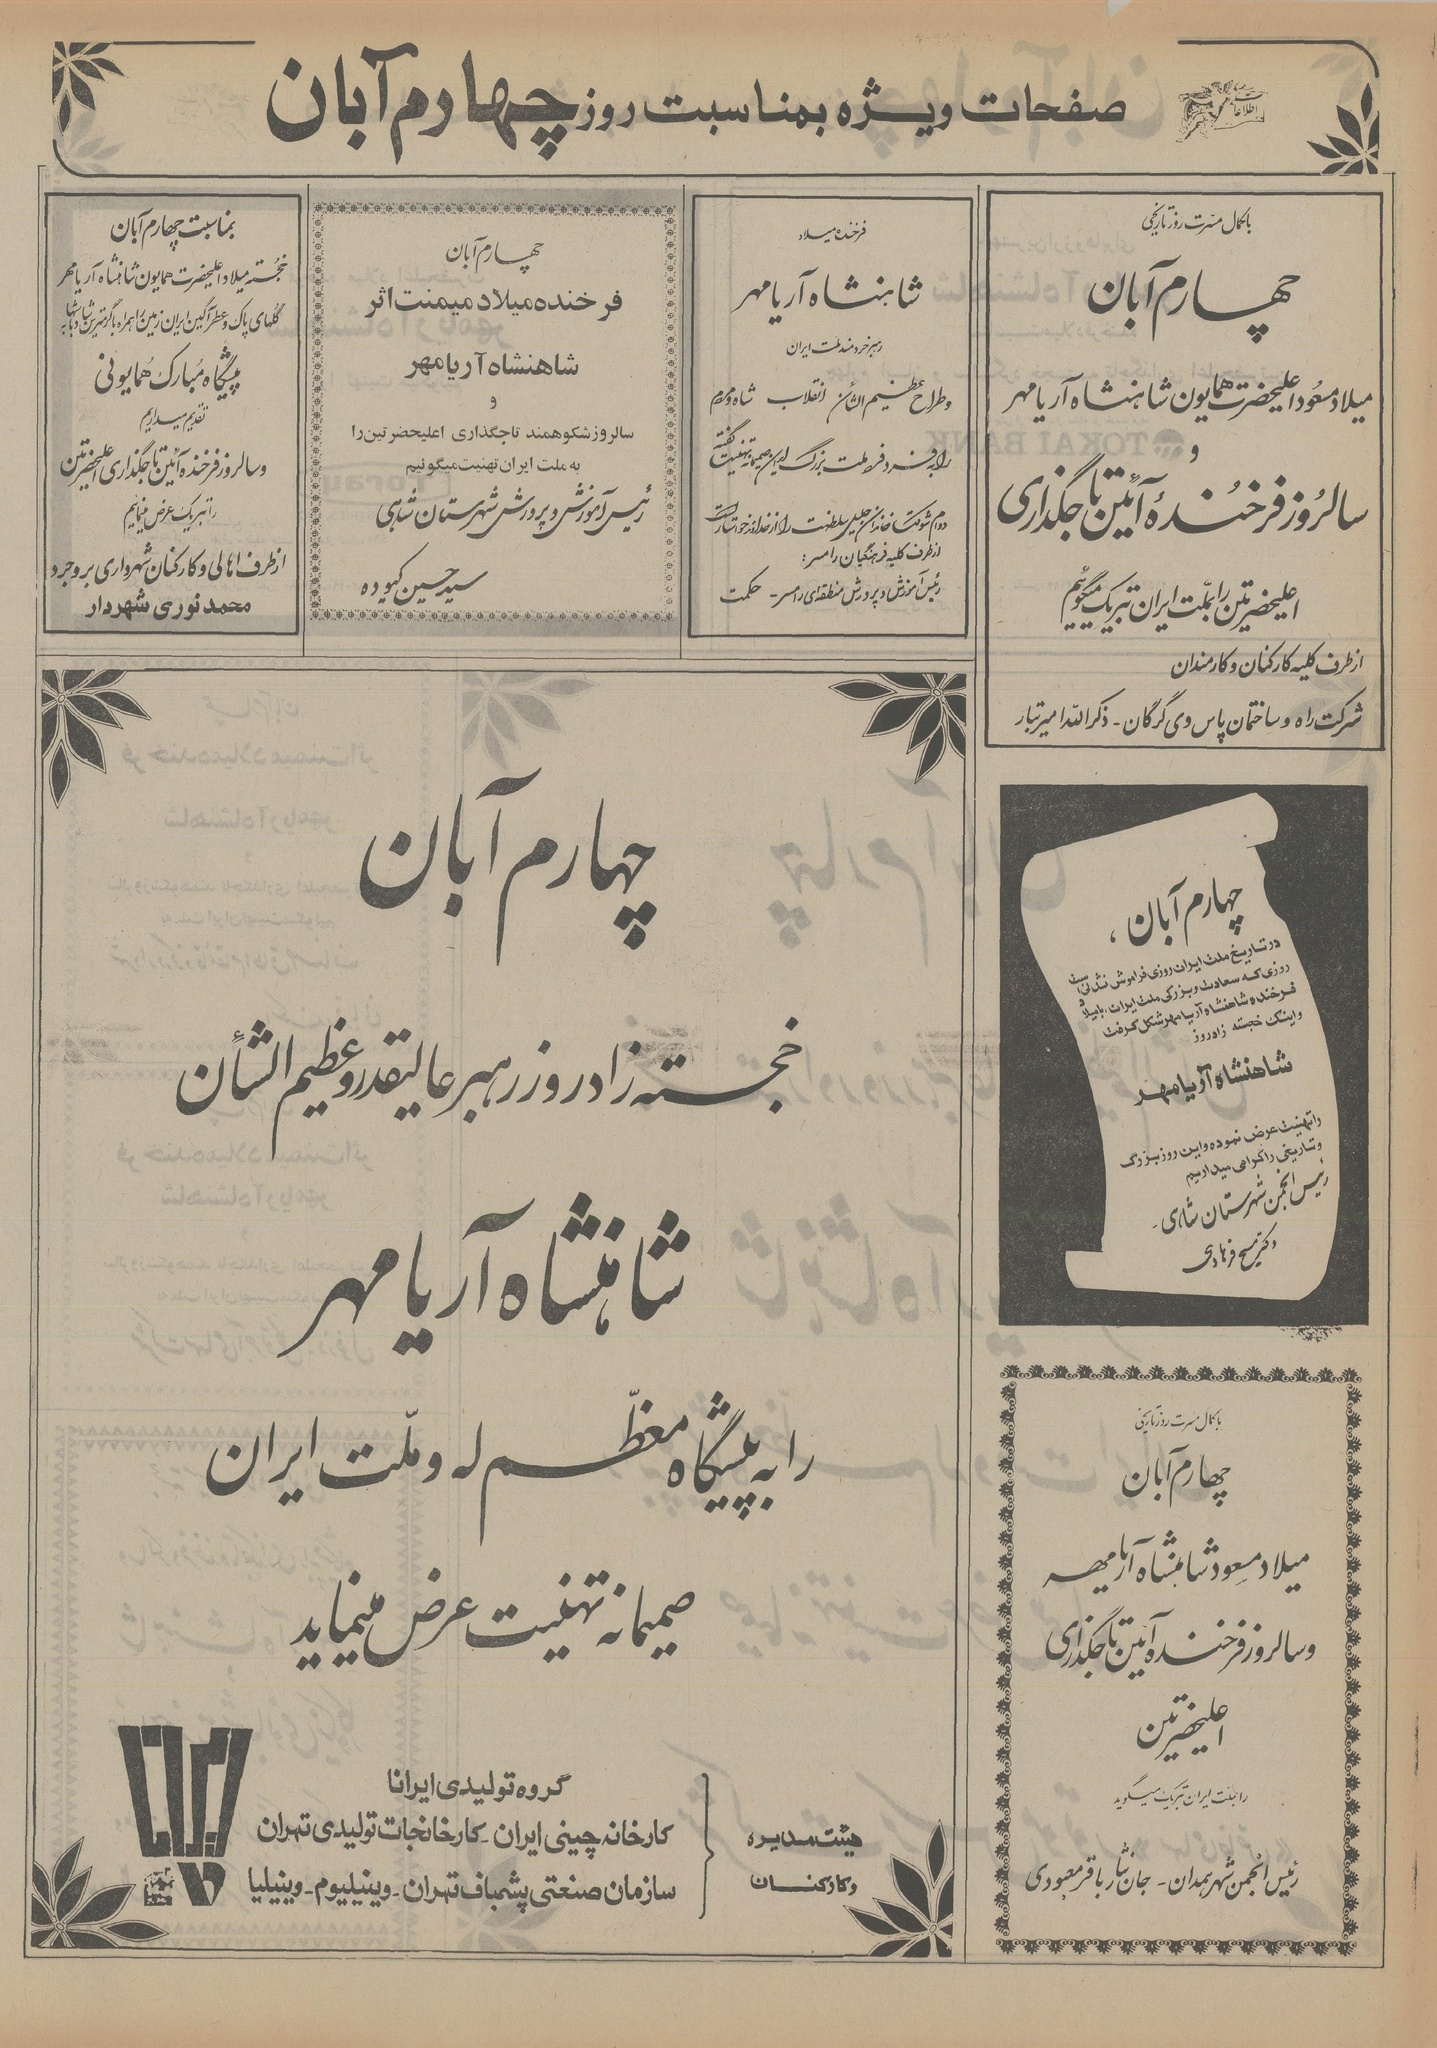 صفحات ویژه بمناسبت روز چهارم آبان
اطلاعات
با کمال مسرت روز تاریخی
چهارم آبان
میلاد مسعود اعلیحضرت همایون شاهنشاه آریامهر
و
سالروز فرخندهٔ آئین تاجگذاری
اعلیحضرتین را بملت ایران تبریک میگوئیم
از طرف کلیه کارکنان و کارمندان
شرکت راه و ساختمان پاس وی گرگان - ذکرالله امیرتبار
فرخنده میلاد
شاهنشاه آریامهر
رهبر خردمند ملت ایران
و طراح عظیم الشأن انقلاب شاه و مردم
را به فرد فرد ملت بزرگ ایران صمیمانه تهنیت گفته
دوام شوکت خاندان جلیل سلطنت را از خداوند خواستاریم
از طرف کلیه فرهنگیان رامسر:
رئیس آموزش و پرورش منطقه‌ای رامسر - حکمت
چهارم آبان
فرخنده میلاد میمنت اثر
شاهنشاه آریامهر
و
سالروز شکوهمند تاجگذاری اعلیحضرتین را
به ملت ایران تهنیت میگوئیم
رئیس آموزش و پرورش شهرستان شاهی
سید حسین کبوده
بمناسبت چهارم آبان
خجسته میلاد اعلیحضرت همایون شاهنشاه آریامهر
گلهای پاک و عطرآگین ایران زمین را همراه با گرمترین شادباشها به
پیشگاه مبارک همایونی
تقدیم میداریم
و سالروز فرخنده آئین تاجگذاری اعلیحضرتین
را تبریک عرض مینمائیم
از طرف اهالی و کارکنان شهرداری بروجرد
محمد نوری شهردار
چهارم آبان،
در تاریخ ملت ایران روزی فراموش نشدنی است
روزی که سعادت و بزرگی ملت ایران، با میلاد
فرخنده شاهنشاه آریامهر شکل گرفت
و اینک خجسته زادروز
شاهنشاه آریامهر
را تهنیت عرض نموده و این روز بزرگ
و تاریخی را گرامی میداریم
رئیس انجمن شهرستان شاهی -
دکتر مسیح فرهادی
چهارم آبان
خجسته زادروز رهبر عالیقدر و عظیم الشأن
شاهنشاه آریامهر
را به پیشگاه معظم له و ملّت ایران
صمیمانه تهنیت عرض مینماید
هیئت مدیره
و کارکنان
گروه تولیدی ایرانا
کارخانه چینی ایران - کارخانجات تولیدی تهران
سازمان صنعتی پشمباف تهران - وینیلیوم - وینیلیا
ایرانا
با کمال مسرت روز تاریخی
چهارم آبان
میلاد مسعود شاهنشاه آریامهر
و سالروز فرخنده آئین تاجگذاری
اعلیحضرتین
را بملت ایران تبریک میگوید
رئیس انجمن شهر همدان - جان نثار باقر معبودی